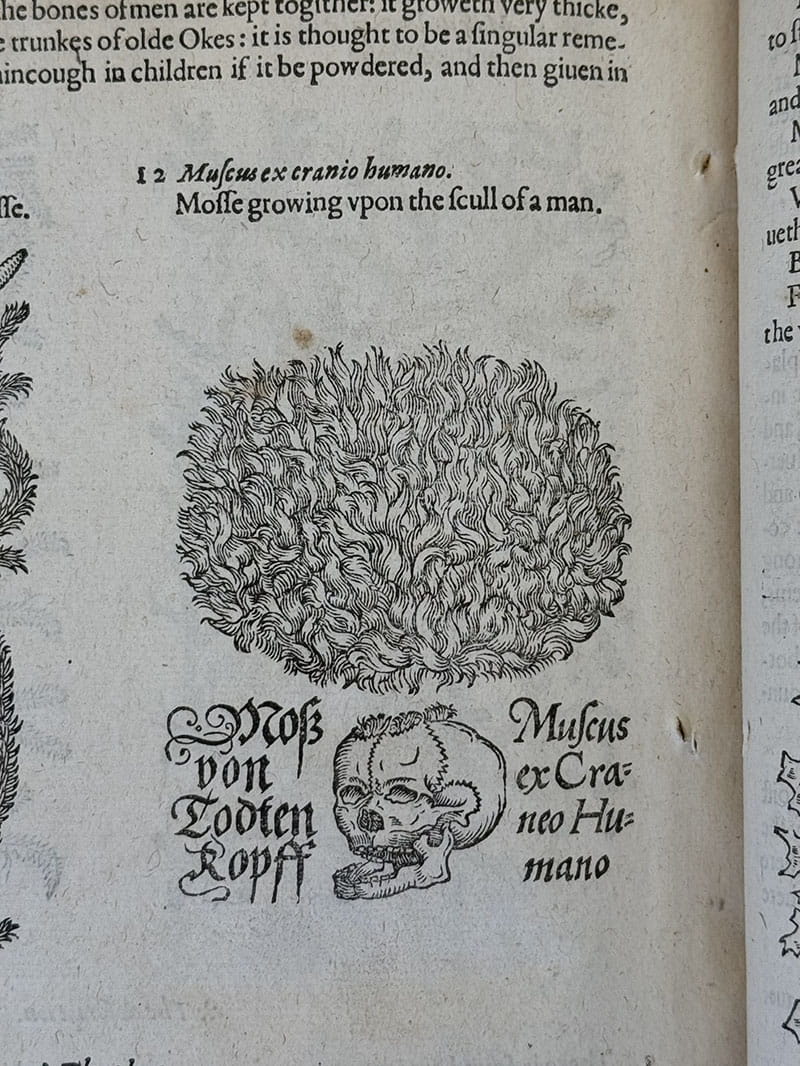 he bones of men are kept togither: it groweth very thicke,
e trunkes of olde Okes: it is thought to be a ſingular reme-
hincough in children if it be powdered, and then giuen in
12 Muſcus ex cranio humano.
ſſe.
Moſſe growing vpon the ſcull of a man.
Moß
von
Todten
Kopff
Muſcus
ex Cra-
neo Hu-
mano
to ſ
and
grea
ueth
the